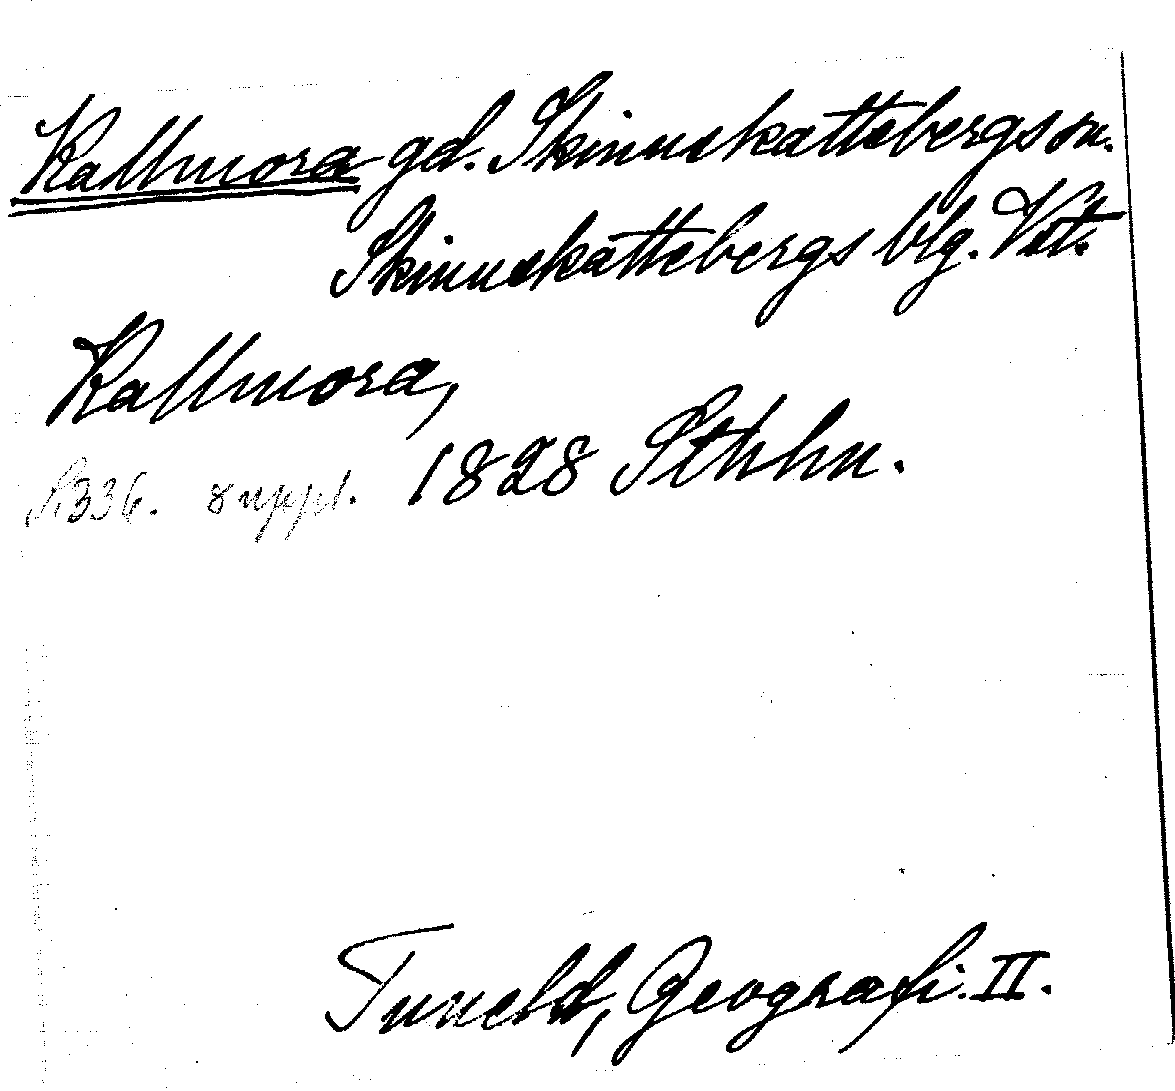 Kallmora gd. Skinnskattebergs sn.
Skinnskattebergs blg. Vst.
Kallmora,
1828 Sthlm.
A336. suppl.
Tuneld, Geografi. II.